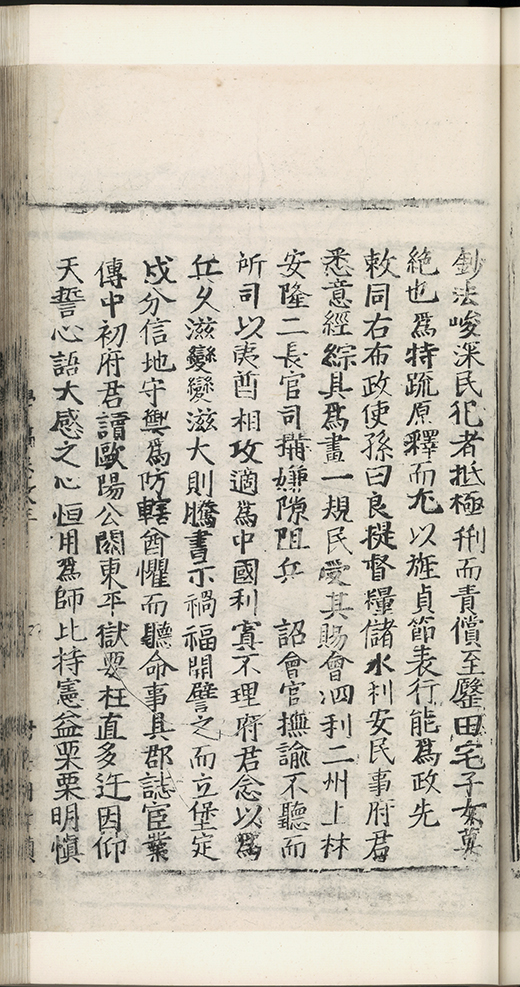 鈔法峻深民犯者抵極刑而責償至鬻田宅子女莫
絶也為特疏原釋而尤以旌貞節表行能為政先
敕同右布政使孫曰良提督糧儲水利安民事府君
悉意經綜具為畫一規民愛其賜會泗利二州上林
安隆二長官司搆嫌隙阻兵 詔會官撫諭不聽而
所司以夷酋相攻適為中國利寘不理府君念以為
兵久滋變變滋大則騰書示禍福開譬之而立堡定
戍分信地守輿為防轄酋懼而聽命事具郡誌宦業
傳中初府君讀歐陽公關東平獄要枉直多迕因仰
天誓心語大感之心恒用為師比持憲益栗栗明慎